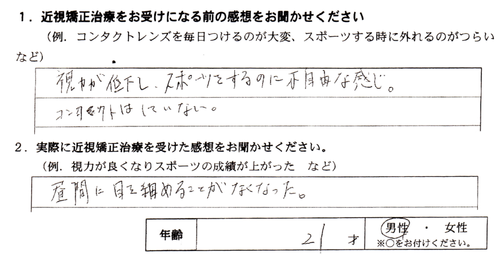 1．近視矯正治療をお受けになる前の感想をお聞かせください
（例．コンタクトレンズを毎日つけるのが大変、スポーツする時に外れるのがつらい
など）
視力が低下し、スポーツをするのに不自由な感じ。
コンタクトはしていない。
2．実際に近視矯正治療を受けた感想をお聞かせください。
（例．視力が良くなりスポーツの成績が上がった　など）
昼間に目を細めることがなくなった。
年齢　21才　男性　・　女性
※○をお付けください。